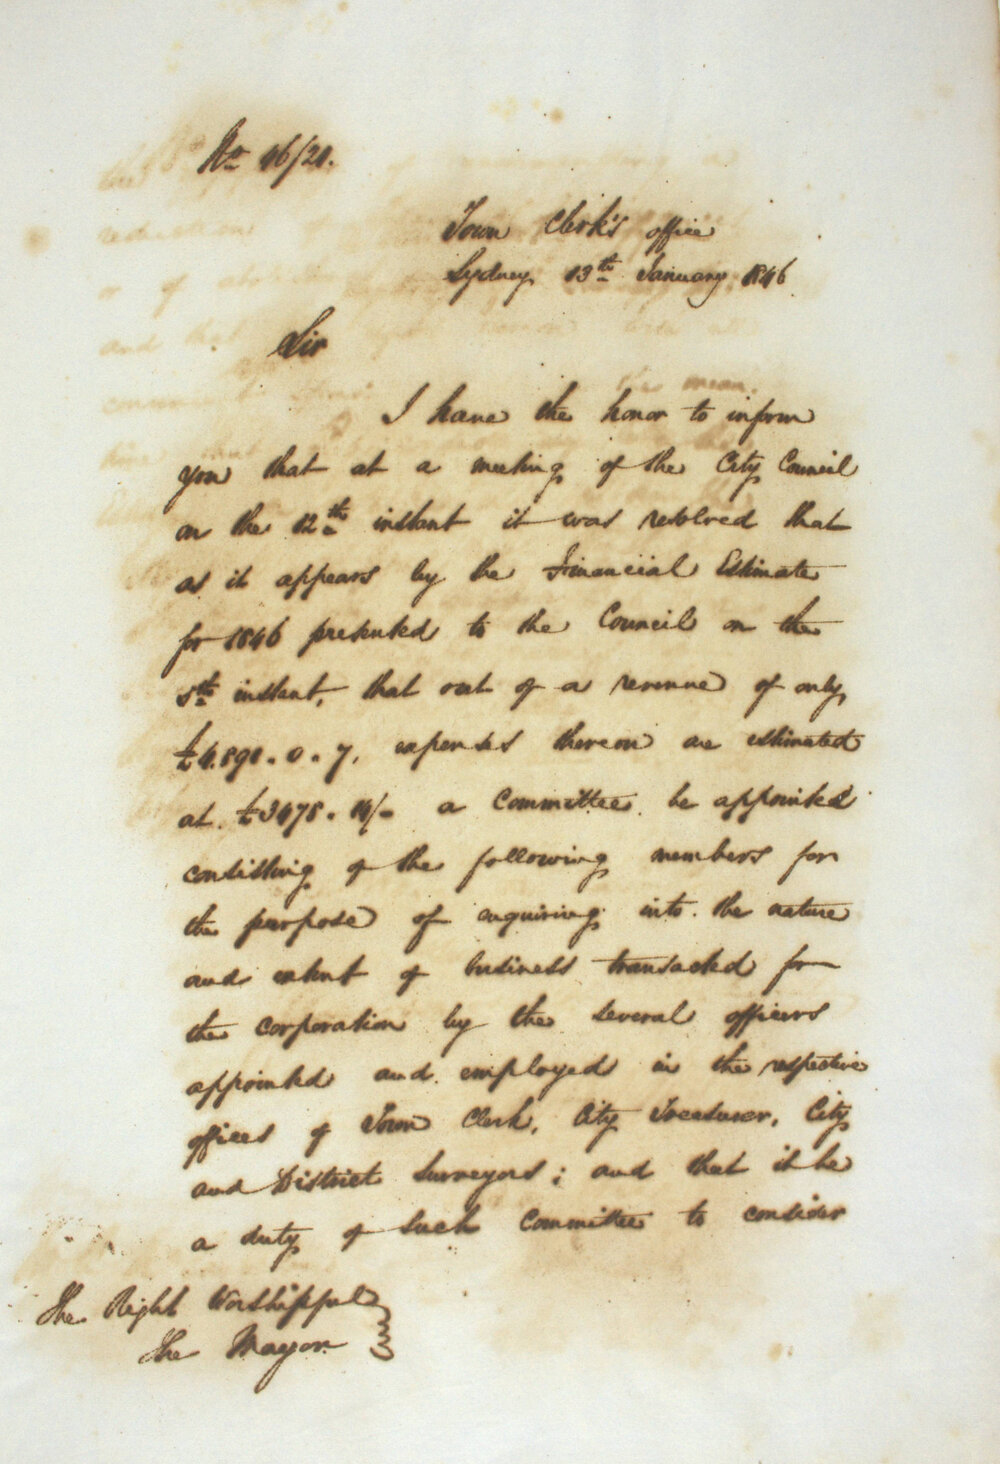 No 46/21.
Town Clerk's office
Sydney 13th January 1846
Sir
I have the honor to inform
you that at a meeting of the City Council
on the 12th instant it was resolved that
as it appears by the Financial Estimate
for 1846 presented to the Council on the
5th instant, that out of a revenue of only
£4.891.0.7, expenses thereon are estimated
at £3478.14/- a Committee be appointed
consisting of the following members for
the purpose of enquiring into the nature
and extent of business transacted for
the corporation by the several officers
appointed and employed in the respective
offices of Town Clerk, City Treasurer, City
and District Surveyors; and that it be
a duty of such Committee to consider
The Right Worshipful
The Mayor